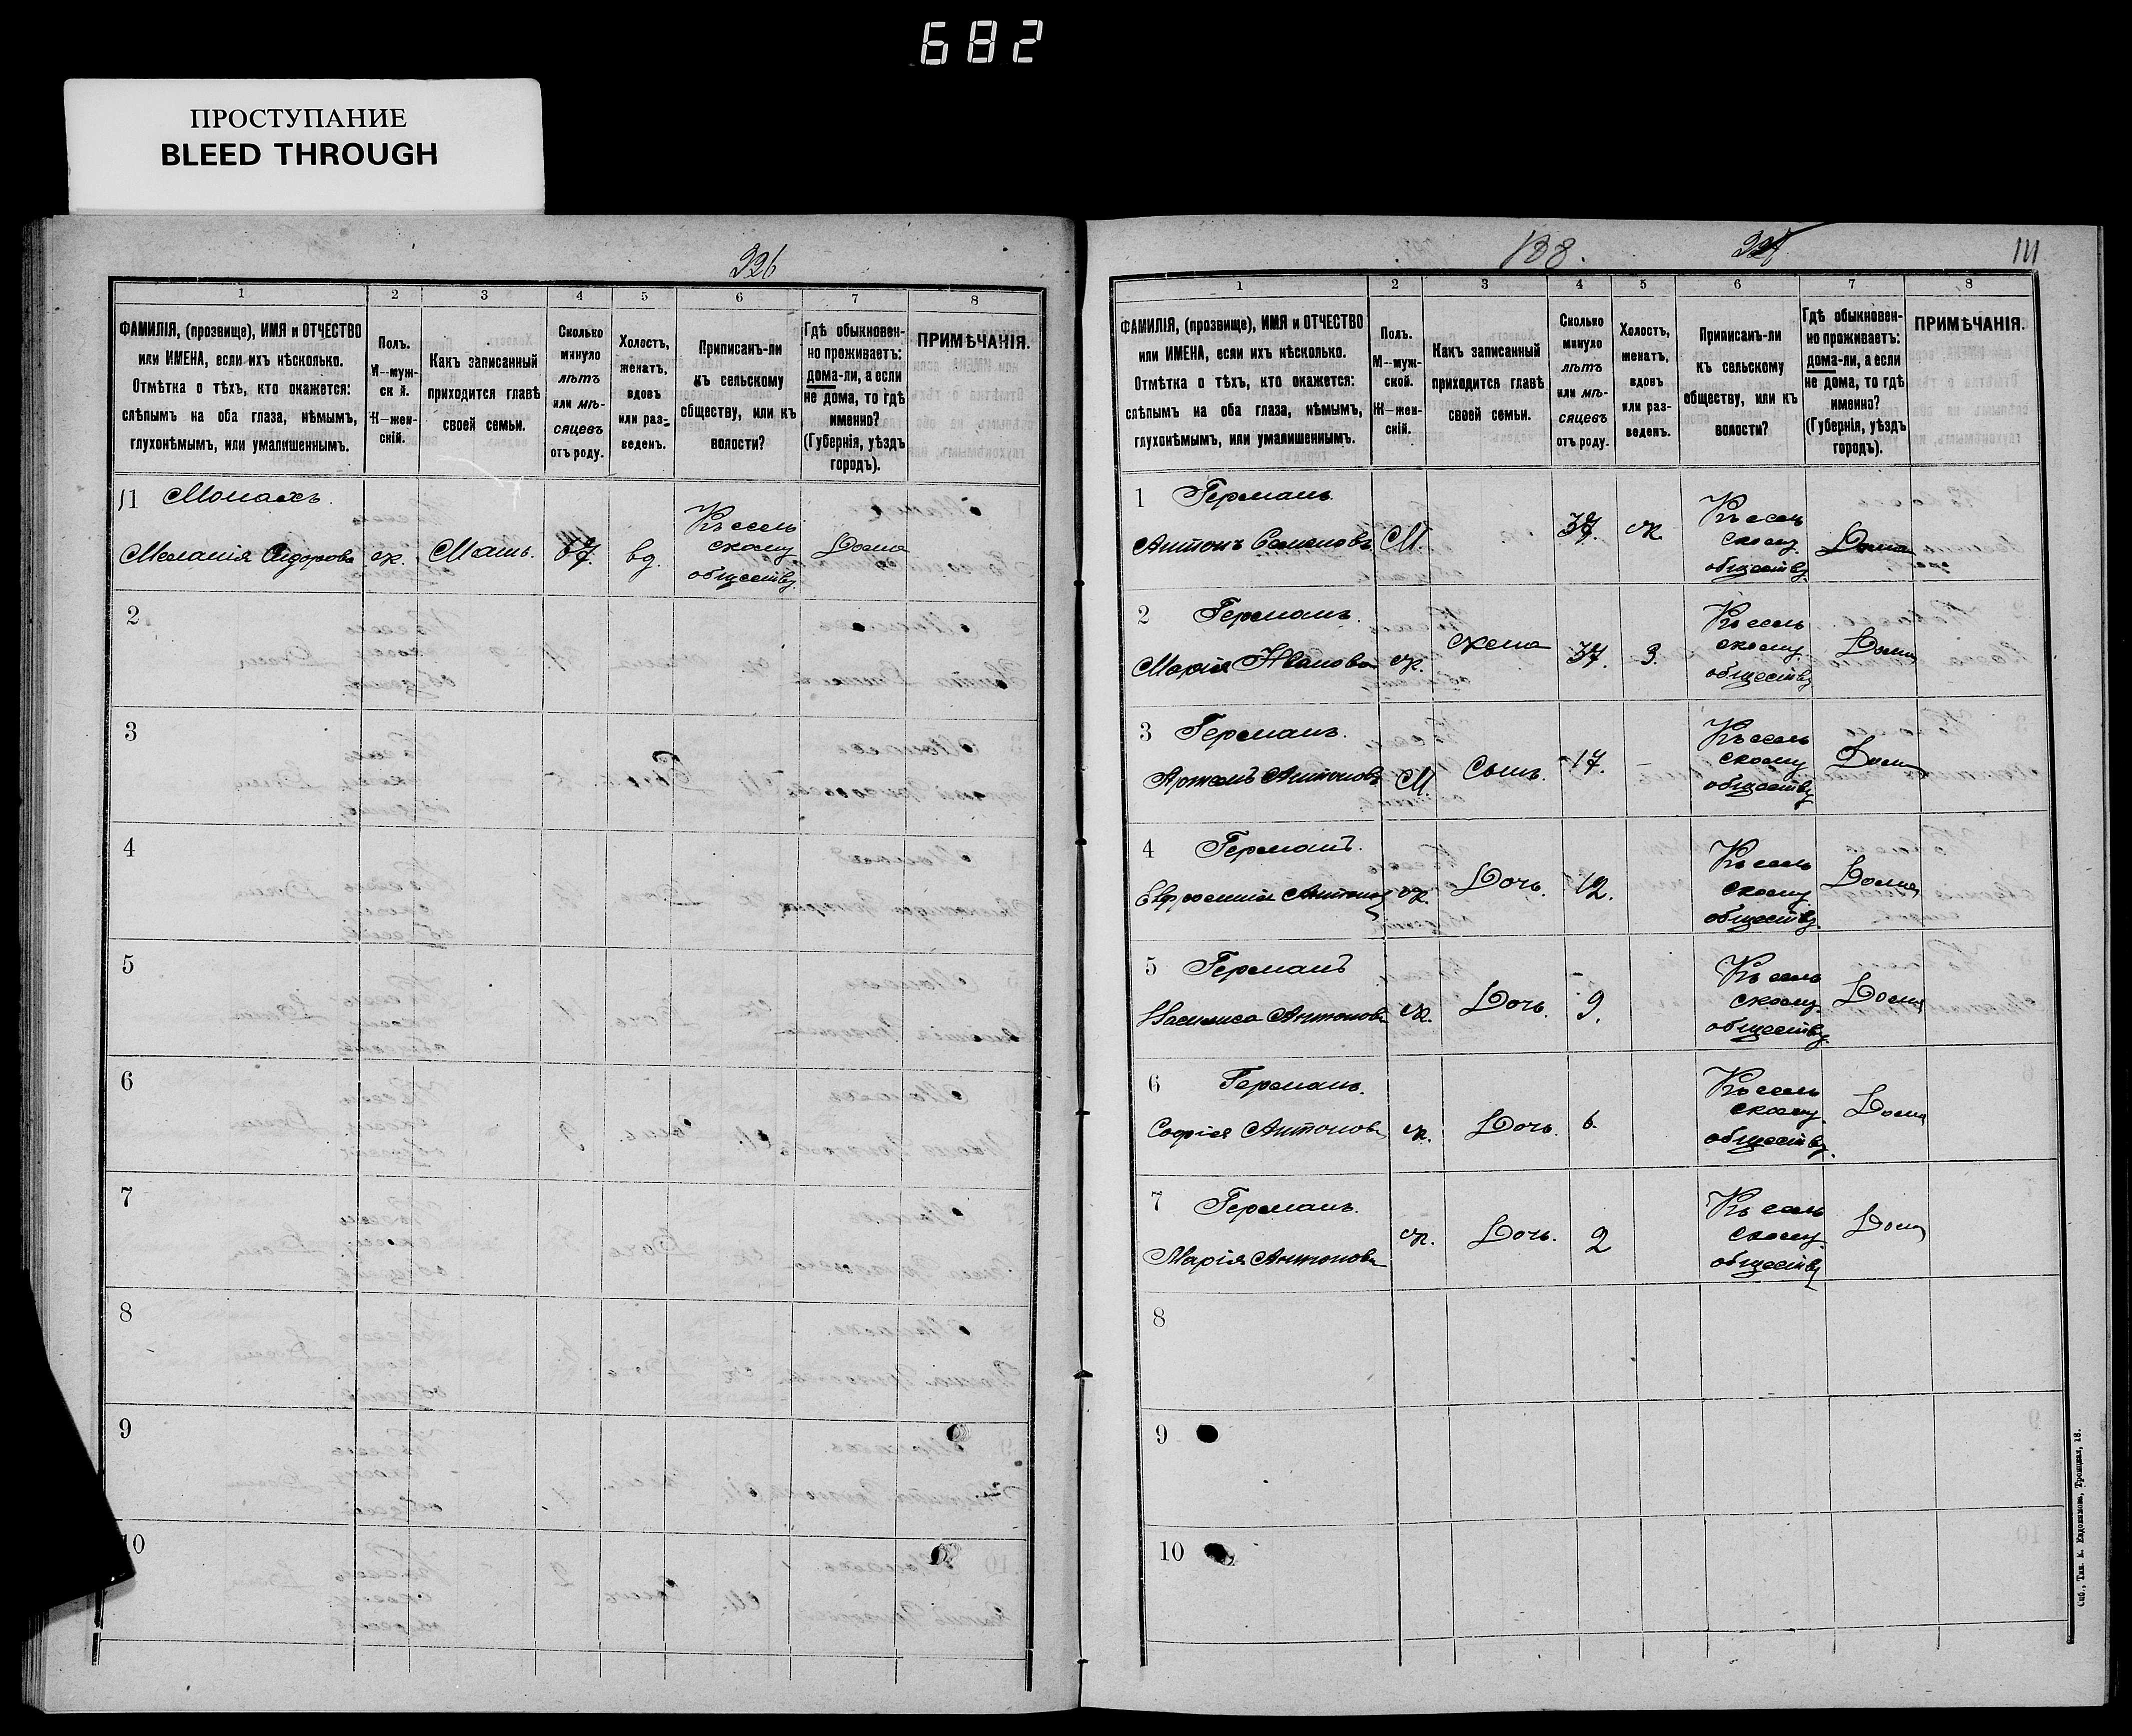 682
ПРОСТУПАНИЕ
BLEED THROUGH
326
1 2 3 4 5 6 7 8
ФАМИЛІЯ, (прозвище), ИМЯ и ОТЧЕСТВО
или ИМЕНА, если ихъ нѣсколько.
Отмѣтка о тѣхъ, кто окажется:
слѣпымъ на оба глаза, нѣмымъ,
глухонѣмымъ, или умалишеннымъ.
Полъ.
М--муж-
ск й.
Ж--жен-
скій.
Какъ записанный
приходится главѣ
своей семьи.
Сколько
минуло
лѣтъ
или мѣ-
сяцевъ
отъ роду.
Холостъ,
женатъ,
вдовъ
или раз-
веденъ.
Приписанъ-ли
къ сельскому
обществу, или къ
волости?
Гдѣ обыкновен-
но проживаетъ:
дома-ли, а если
не дома, то гдѣ
именно?
(Губернія, уѣздъ
городъ).
ПРИМѢЧАНІЯ.
11 Монахъ.
Меланія Сидорова ж. Мать. 67. вд. Къ сель
скому
обществу. Дома
2
3
4
5
6
7
8
9
10
138.
111
1 2 3 4 5 6 7 8
ФАМИЛІЯ, (прозвище), ИМЯ и ОТЧЕСТВО
или ИМЕНА, если ихъ нѣсколько.
Отмѣтка о тѣхъ, кто окажется:
слѣпымъ на оба глаза, нѣмымъ,
глухонѣмымъ, или умалишеннымъ.
Полъ.
М--муж-
ской.
Ж--жен-
скій.
Какъ записанный
приходится главѣ
своей семьи.
Сколько
минуло
лѣтъ
или мѣ-
сяцевъ
отъ роду.
Холостъ,
женатъ,
вдовъ
или раз-
веденъ.
Приписанъ-ли
къ сельскому
обществу, или къ
волости?
Гдѣ обыкновен-
но проживаетъ:
дома-ли, а если
не дома, то гдѣ
именно?
(Губернія, уѣздъ
городъ).
ПРИМѢЧАНІЯ.
1 Германъ.
Антонъ Семеновъ М. 37. ж. Къ сель
скому
обществу. Дома
2 Германъ.
Марія Иванова ж. жена 37. З. Къ сель
скому
обществу Дома
3 Германъ.
Артемъ Антоновъ М. Сынъ. 17. Къ сель
скому
обществу Дома
4 Германъ.
Евфросинія ж. Дочь. 12. Къ сель
скому
обществу. Дома
5 Германъ
Василиса Антонова ж. Дочь. 9. Къ сель
скому
обществу. Дома
6 Германъ.
Софія Антонова ж. Дочь. 6. Къ сель
скому
обществу. Дома
7 Германъ.
Марія Антонова ж. Дочь. 2 Къ сель
скому
обществу Дома
8
9
10
Спб., Тип. К. Евдокимова, Троицкая, 18.